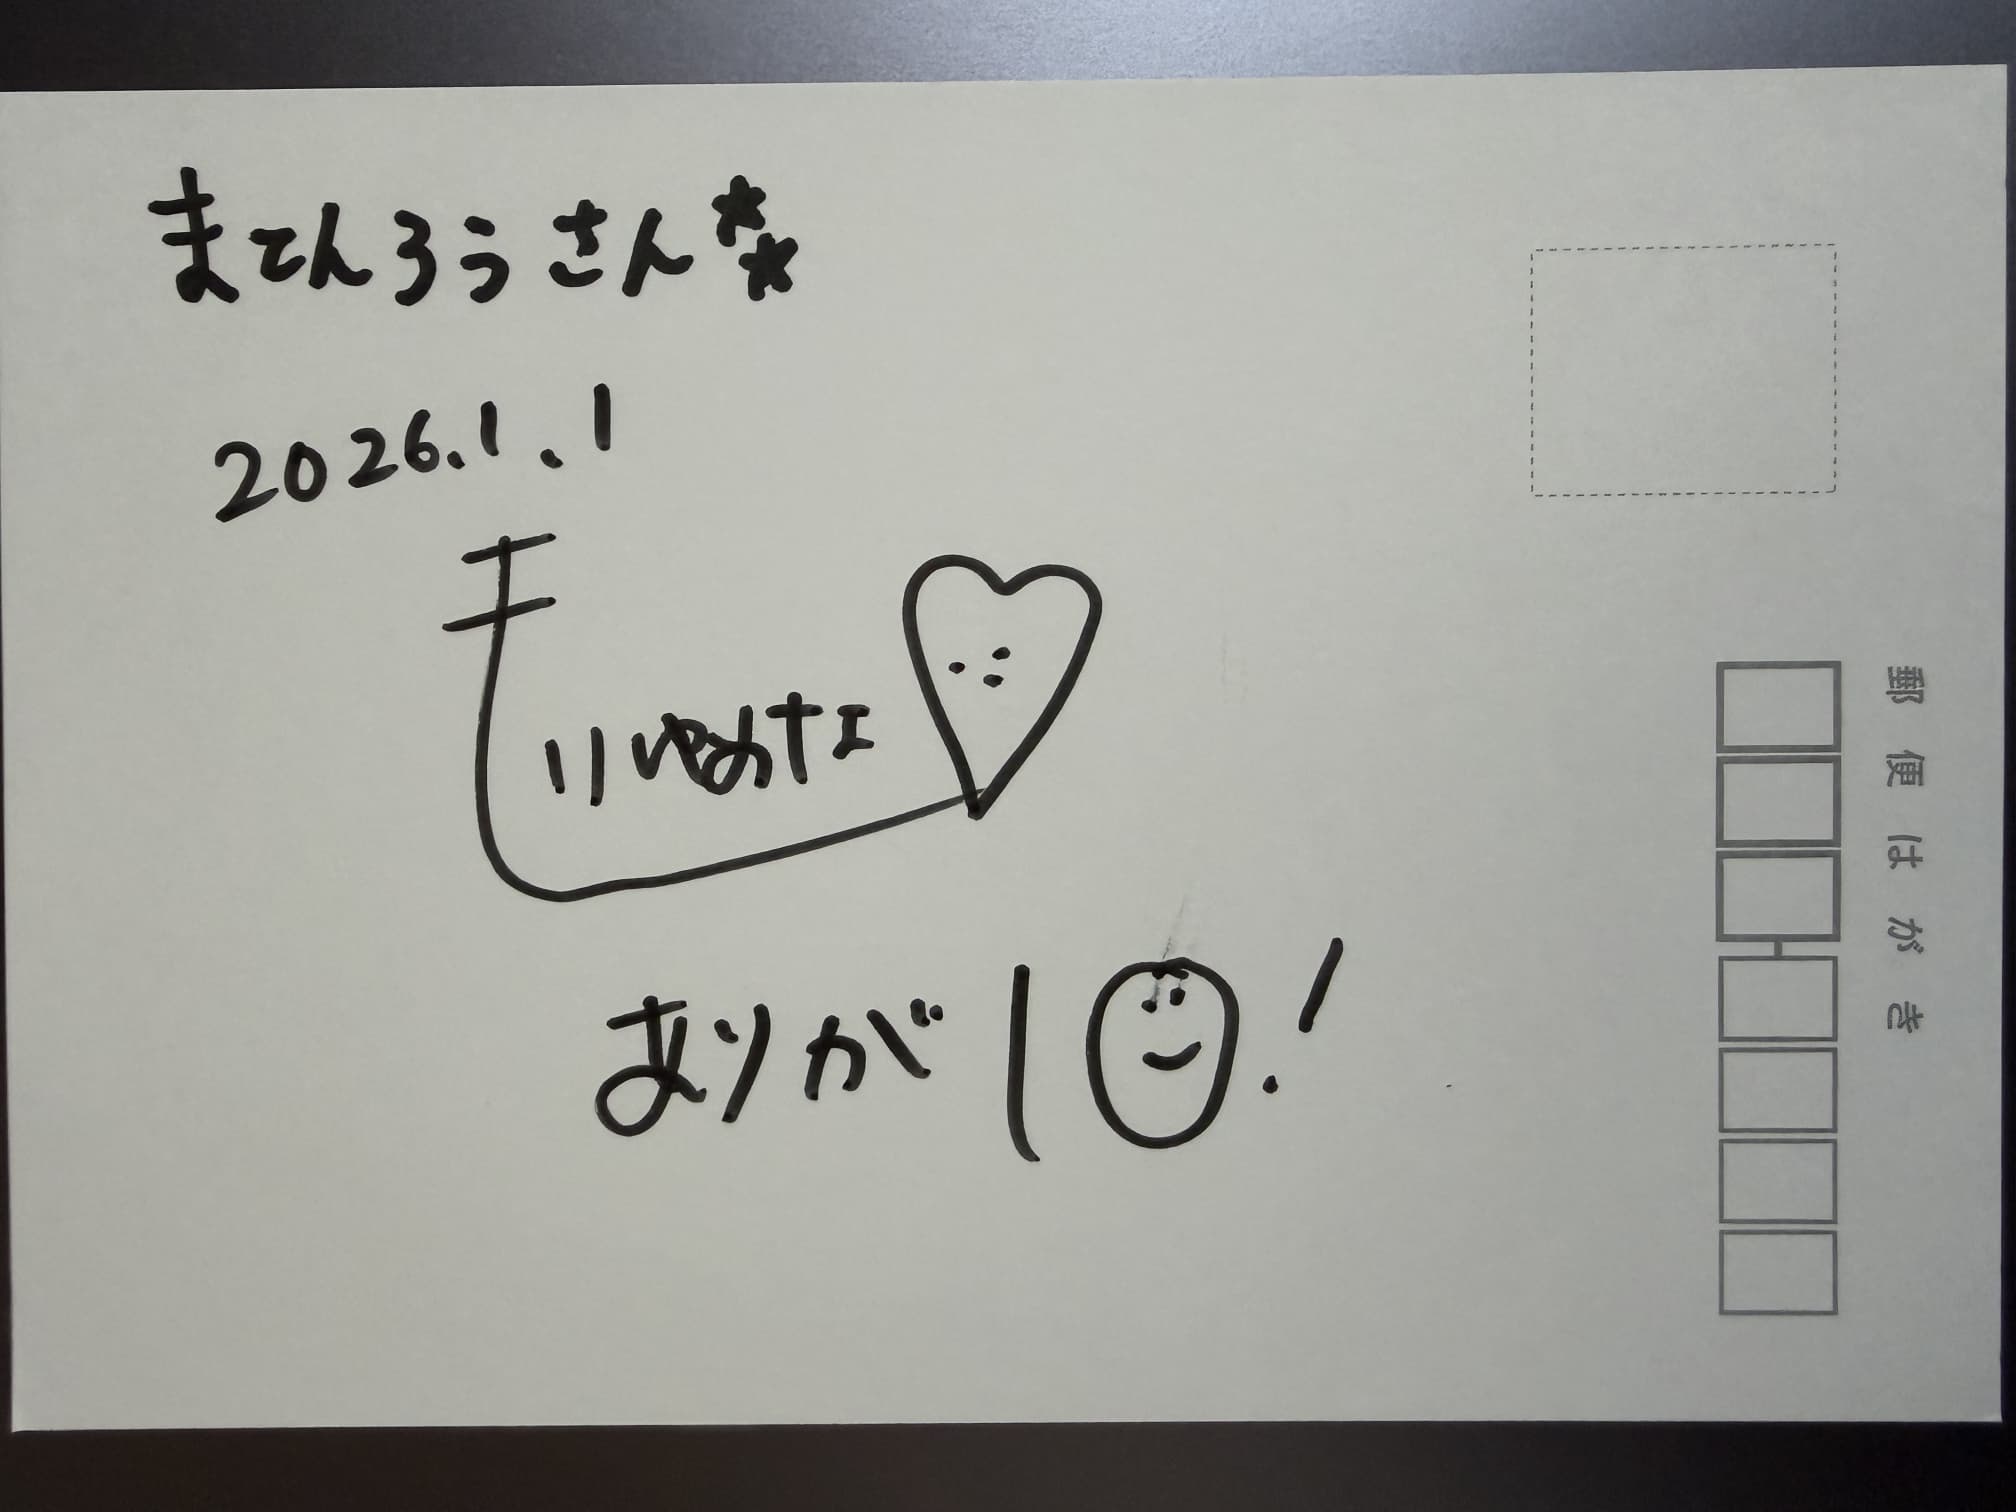 まてんろうさん
2026.1.1
ありが10!
郵便はがき